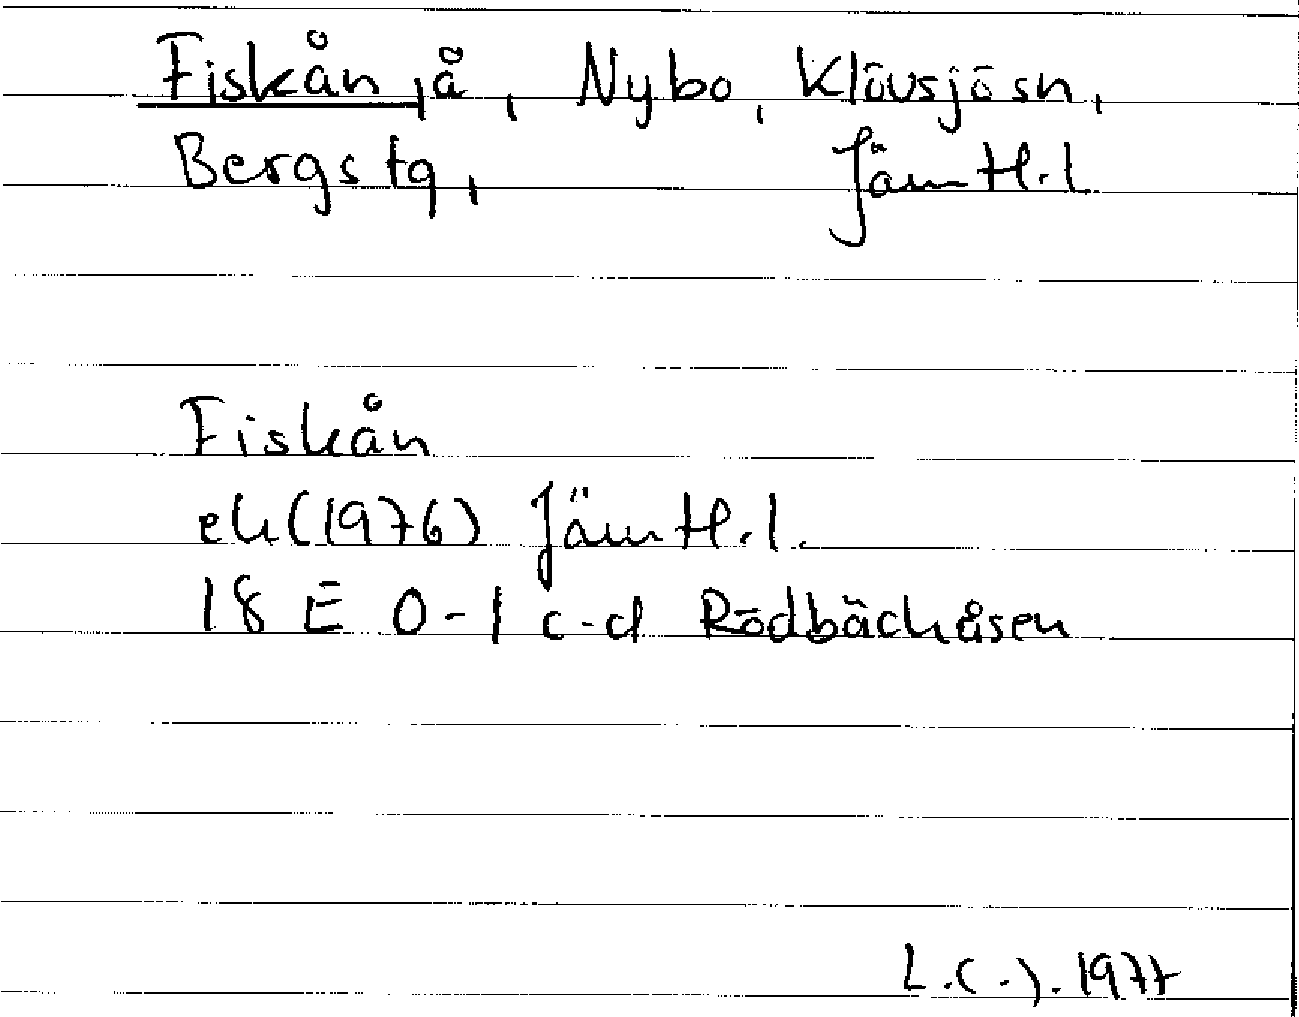 Fiskån, å, Nybo, Klövsjö sn,
Bergs tg, Jämtl. l
Fiskån
ek (1976) Jämtl. l.
18 E 0-1 c-d Rödbäckåsen
L.C.J. 1977